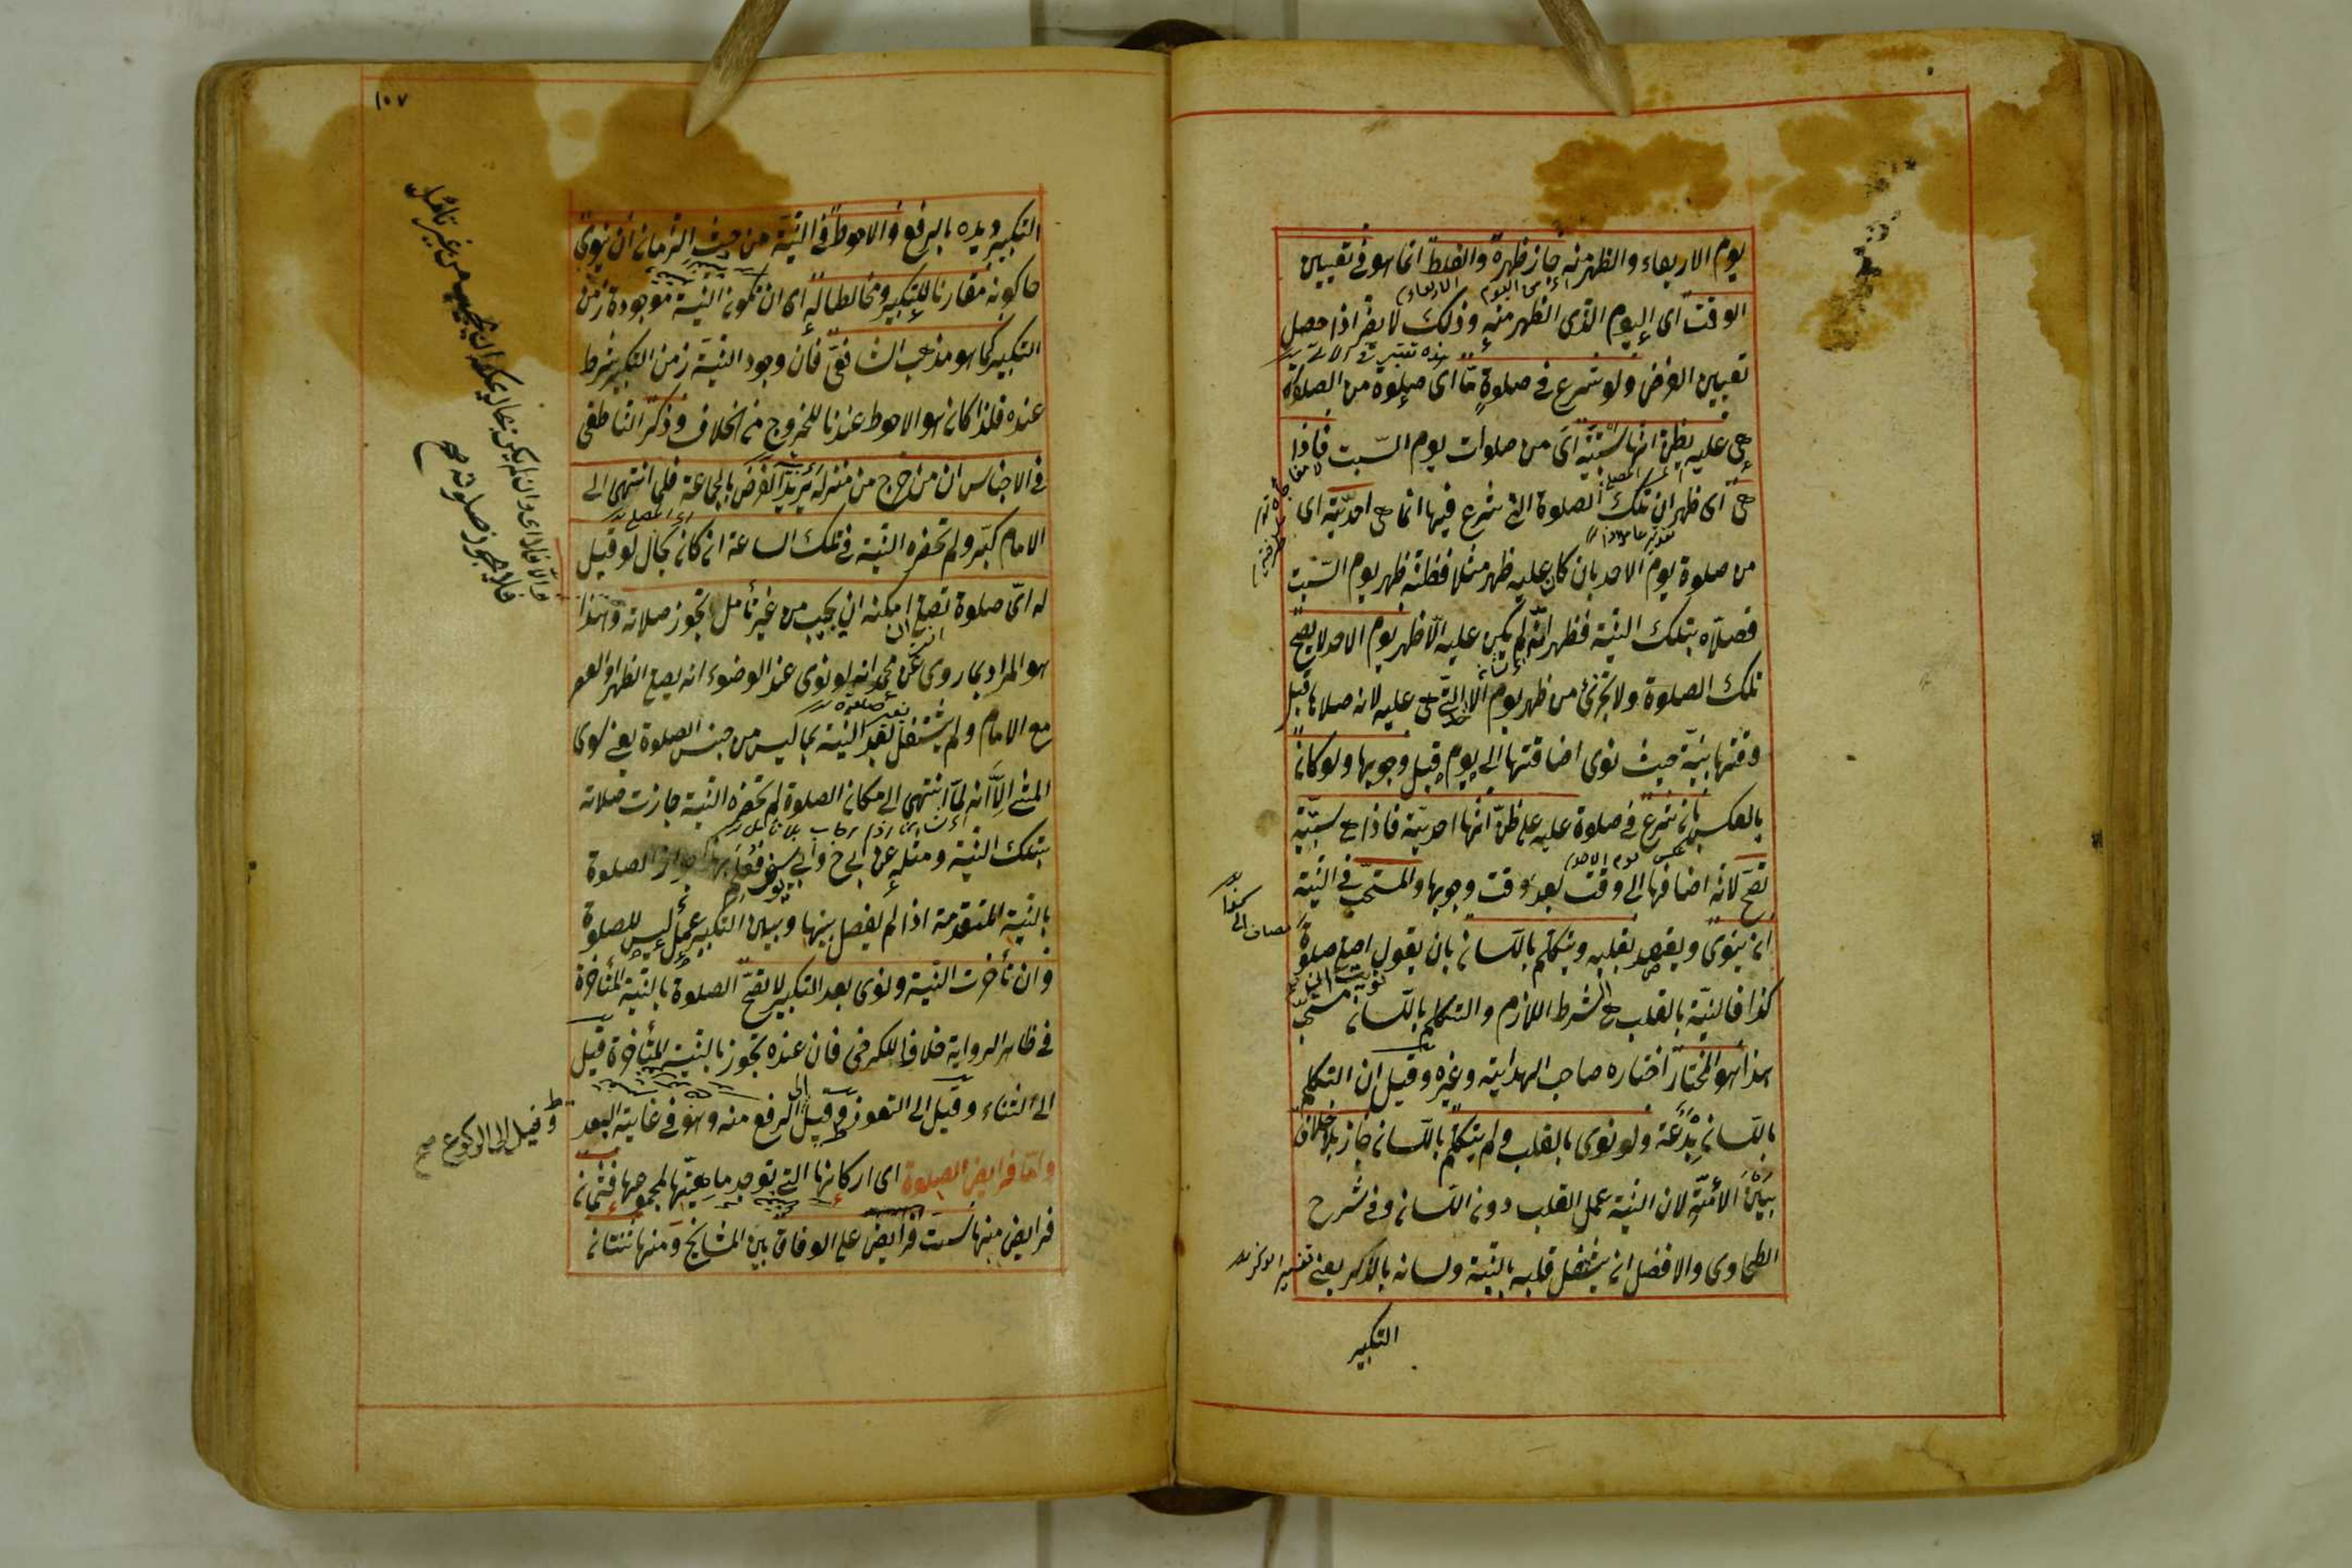 يوم الاربعاء والظهر منه جاز ظهره والغلط انما هو فى تعيين
الوقت اى اليوم الذى الظهر منه وذلك لا يضر اذا حصل
تعيين الفرض ولو شرع فى صلوة ما اى صلوة من الصلوة
هى عليه يظن انها سبتية اى من صلوات يوم السبت فاذا
هى اى ظهر ان تلك الصلوة التى شرع فيها انما هى احدية اى
من صلوة يوم الاحد بان كان عليه ظهر مثلا فظنه ظهر يوم السبت
فصلاه بتلك النية فظهر انه لم يكن عليه الا ظهر يوم الاحد لا يصح
تلك الصلوة ولا تجزئ من ظهر يوم الاحد التى هى عليه لانه صلاها قبل
وقتها بنية حيث نوى اضافتها الى يوم قبل وجوبها ولو كان
بالعكس بان شرع فى صلوة عليه على ظن انها احدية فاذا هى سبتية
تصح لانه اضافها الى وقت بعد وقت وجوبها والمستحب فى النية
ان ينوى ويقصد بقلبه ويتكلم باللسان بان يقول اصلى صلوة
كذا فالنية بالقلب هى الشرط اللازم والتكلم باللسان مستحب
هذا هو المختار اختاره صاحب الهداية وغيره وقيل ان التكلم
باللسان بدعة ولو نوى بالقلب ولم يتكلم باللسان جاز بلا خلاف
بين الأئمة لان النية عمل القلب دون اللسان وفى شرح
الطحاوى والافضل ان يشغل قلبه بالنية ولسانه بالذكر يعنى
التكبير
١٠٧
التكبير ويده بالرفع والاحوط فى النية من حيث الزمان ان ينوى
حال كونه مقارنا للتكبير ومخالطا له اى ان تكون النية موجودة زمن
التكبير كما هو مذهب الشافعى فان وجود النية زمن التكبير شرط
عنده فلذا كان هو الاحوط عندنا للخروج من الخلاف وذكر الناطفى
فى الاجناس ان من خرج من منزله يريد الفرض بالجماعة فلما انتهى الى
الامام كبر ولم تحضره النية فى تلك الساعة ان كان بحال لو قيل
له اى صلوة تصلى امكنه ان يجيب من غير تأمل تجوز صلاته وهذا
هو المراد بما روى عن محمد انه لو نوى عند الوضوء انه يصلى الظهر او العصر
مع الامام ولم يشتغل بعد النية بما ليس من جنس الصلوة يعنى سوى
المشى الا انه لما انتهى الى مكان الصلوة لم تحضره النية جازت صلاته
بتلك النية ومثله عن ابى ح وابى يوسف فعلم بهذا جواز الصلوة
بالنية المتقدمة اذا لم يفصل بينها وبين التكبير عمل ليس للصلوة
وان تأخرت النية ونوى بعد التكبير لا تصح الصلوة بالنية المتأخرة
فى ظاهر الرواية خلافا للكرخى فان عنده تجوز بالنية المتأخرة قيل
الى الثناء وقيل الى التعوذ وقيل الى الرفع منه وهو فى غاية البعد
واما فرايض الصلوة اى اركانها التى توجد ماهيتها لمجموعها فثمان
فرايض منها ست فرايض على الوفاق بين المشايخ ومنها ثنتان
والا فلا اى وان لم يكن بحال يمكنه ان يجيب من غير تأمل
فلا تجوز صلوته صح
وقيل الى الركوع صح